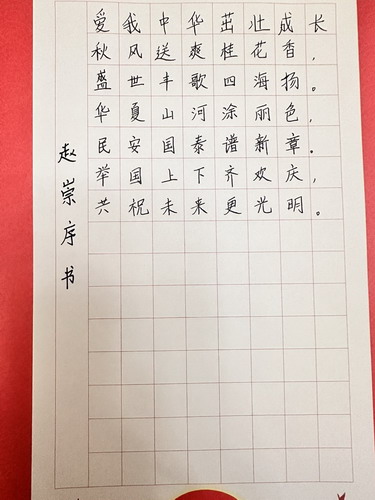 爱我中华茁壮成长
秋风送爽桂花香，
盛世丰歌四海扬。
华夏山河涂丽色，
民安国泰谱新章。
举国上下齐欢庆，
共祝未来更光明。
赵崇序书